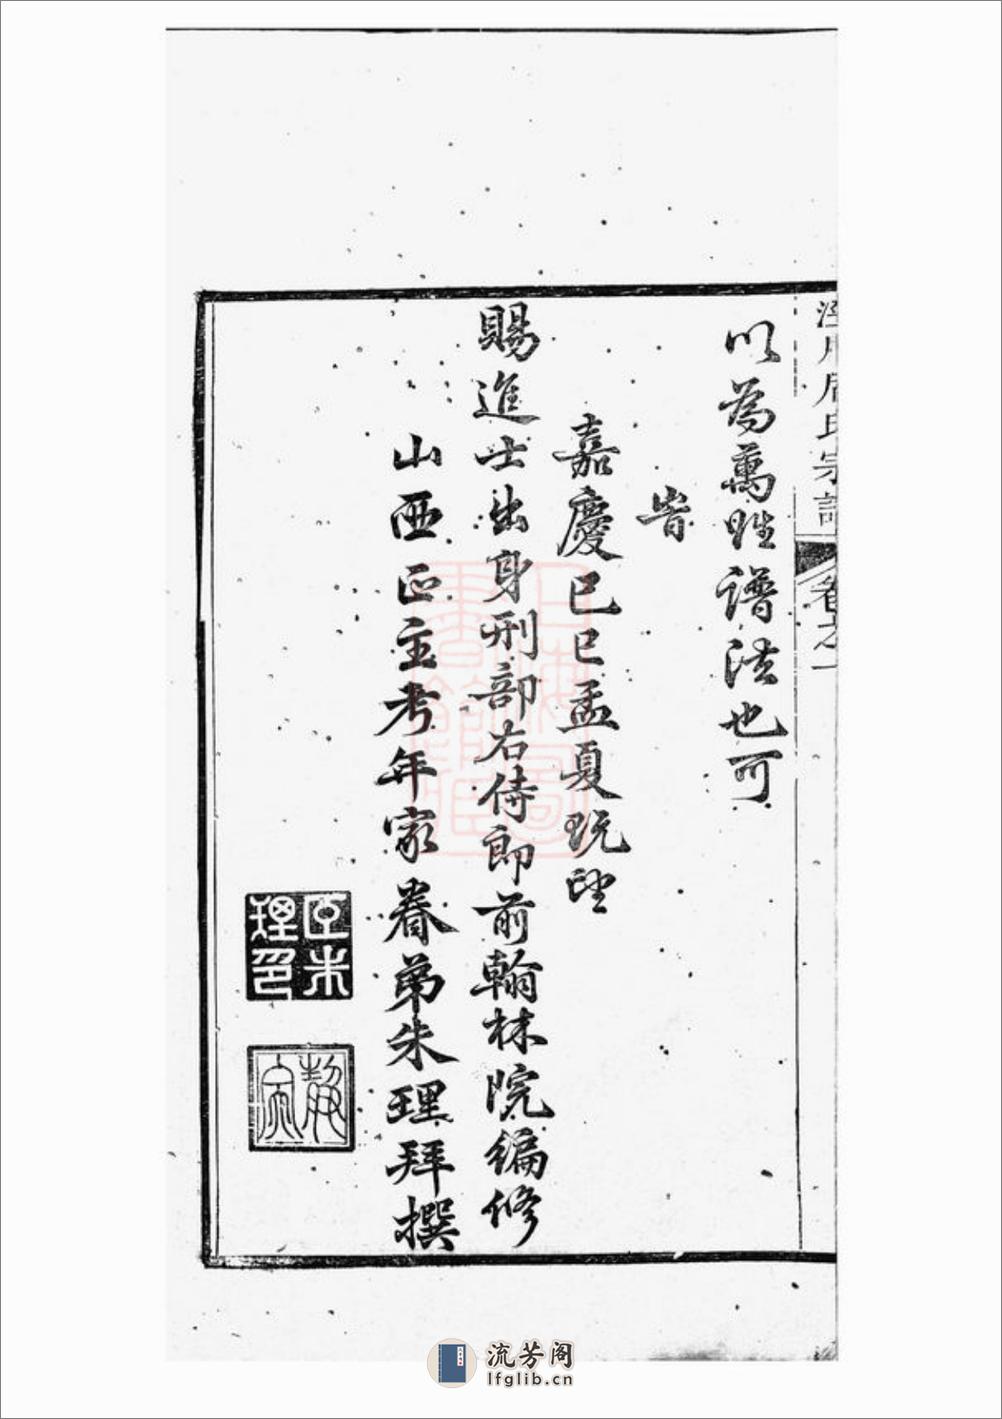 涇川周氏宗譜 卷之一
以為萬姓譜法也可
旹
嘉慶己巳孟夏既望
賜進士出身刑部右侍郎前翰林院編修
山西正主考年家眷弟朱理拜撰
臣朱理印
靜齋
上海圖書館藏
流芳阁
lfglib.cn